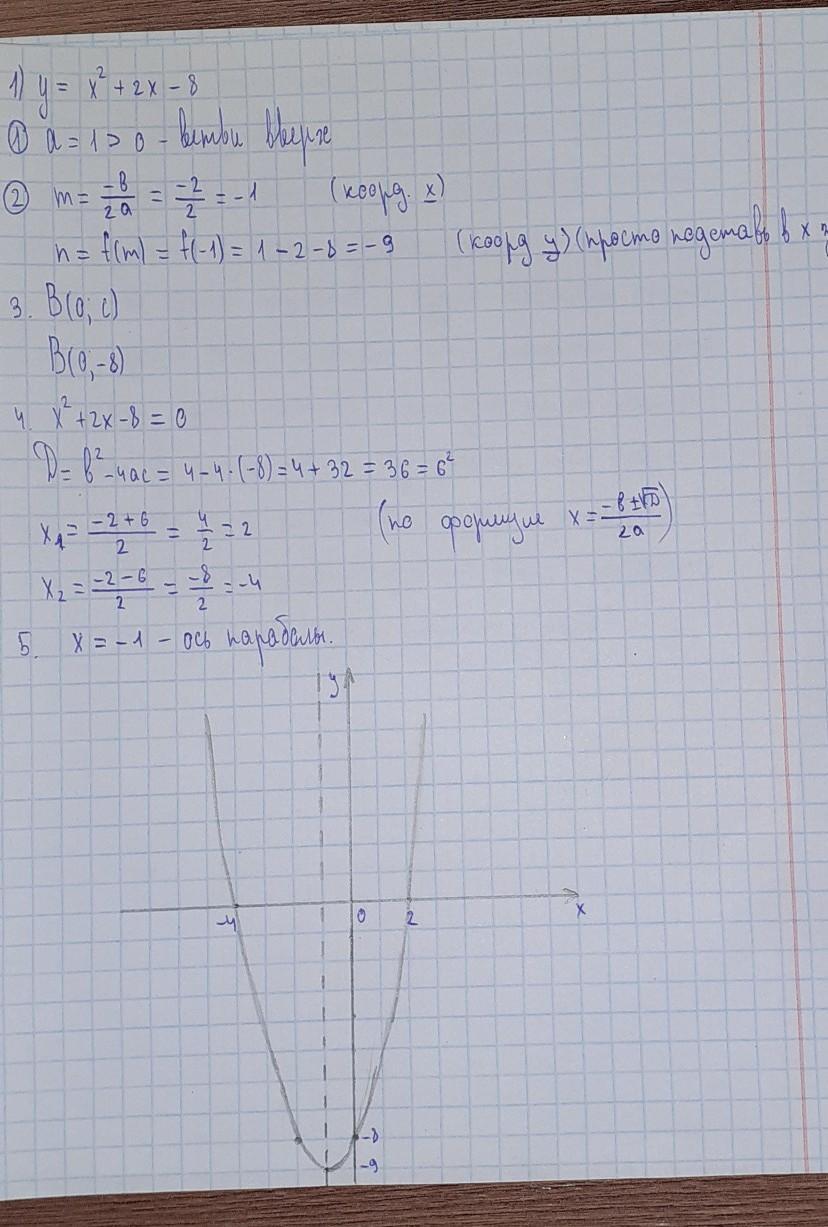 1) y = x² + 2x - 8
① a = 1 > 0 - ветви вверх
② m = -в/2a = -2/2 = -1 (коорд. x)
n = f(m) = f(-1) = 1 - 2 - 8 = -9 (коорд y) (просто подставь в x
3. B(0; c)
B(0; -8)
4. x² + 2x - 8 = 0
D = в² - 4ac = 4 - 4·(-8) = 4 + 32 = 36 = 6²
x₁ = -2+6/2 = 4/2 = 2 (по формуле x = -в±√D/2a)
x₂ = -2-6/2 = -8/2 = -4
5. x = -1 - ось параболы.
y
-4 0 2 x
-8
-9